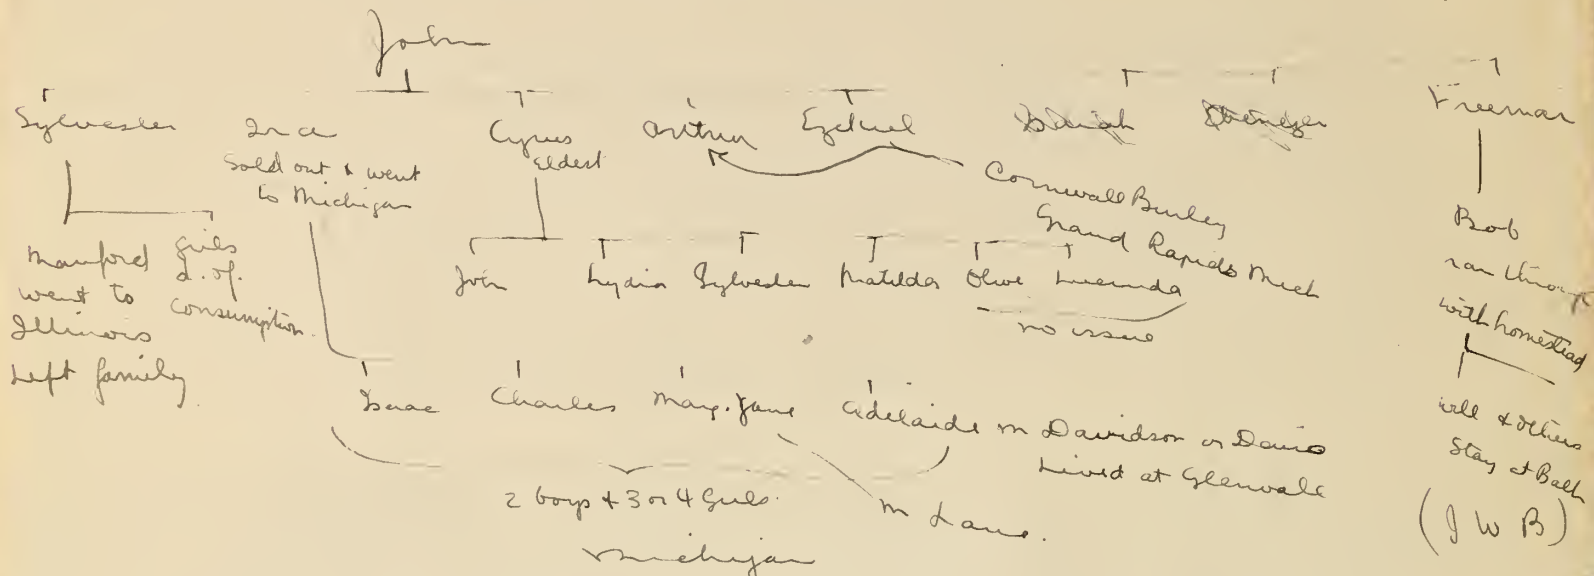 John
Sylvester
Ira
Sold out & went
to Michigan
Cyrus
eldest
Arthur
Ezekiel
Isaiah
Ebenezer
Freeman
Cornwall Burley
Grand Rapids Mich
Manford
went to
Illinois
Left family
girls
d. of.
consumption.
John Lydia Sylvester Matilda Olive Lucinda
no issue
Bob
ran through
with homestead
will & others
Stay at Bath
(J W B)
Isaac Charles Mary. Jane Adelaide m Davidson or Davis
Lived at Glenvale
2 boys & 3 or 4 Girls.
Michigan
m Lane.